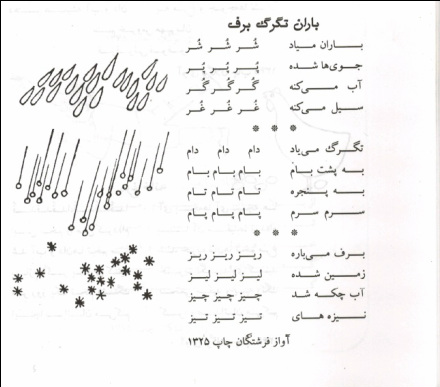 باران تگرگ برف
باران میاد شُر شُر شُر
جوی‌ها شده پُر پُر پُر
آب می‌کنه گُر گُر گُر
سیل می‌کنه غُر غُر غُر
* * *
تگرگ می‌یاد دام دام دام
به پشت بام بام بام بام
به پنجره تام تام تام
سرم سرم پام پام پام
* * *
برف می‌باره ریز ریز ریز
زمین شده لیز لیز لیز
آب چکه شد چیز چیز چیز
نیزه های تیز تیز تیز
آواز فرشتگان چاپ ۱۳۲۵